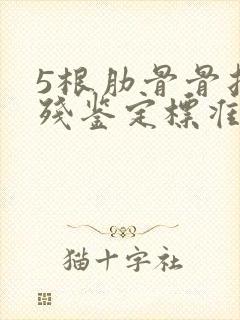 5根肋骨骨折
残鉴定标准
猫十字社